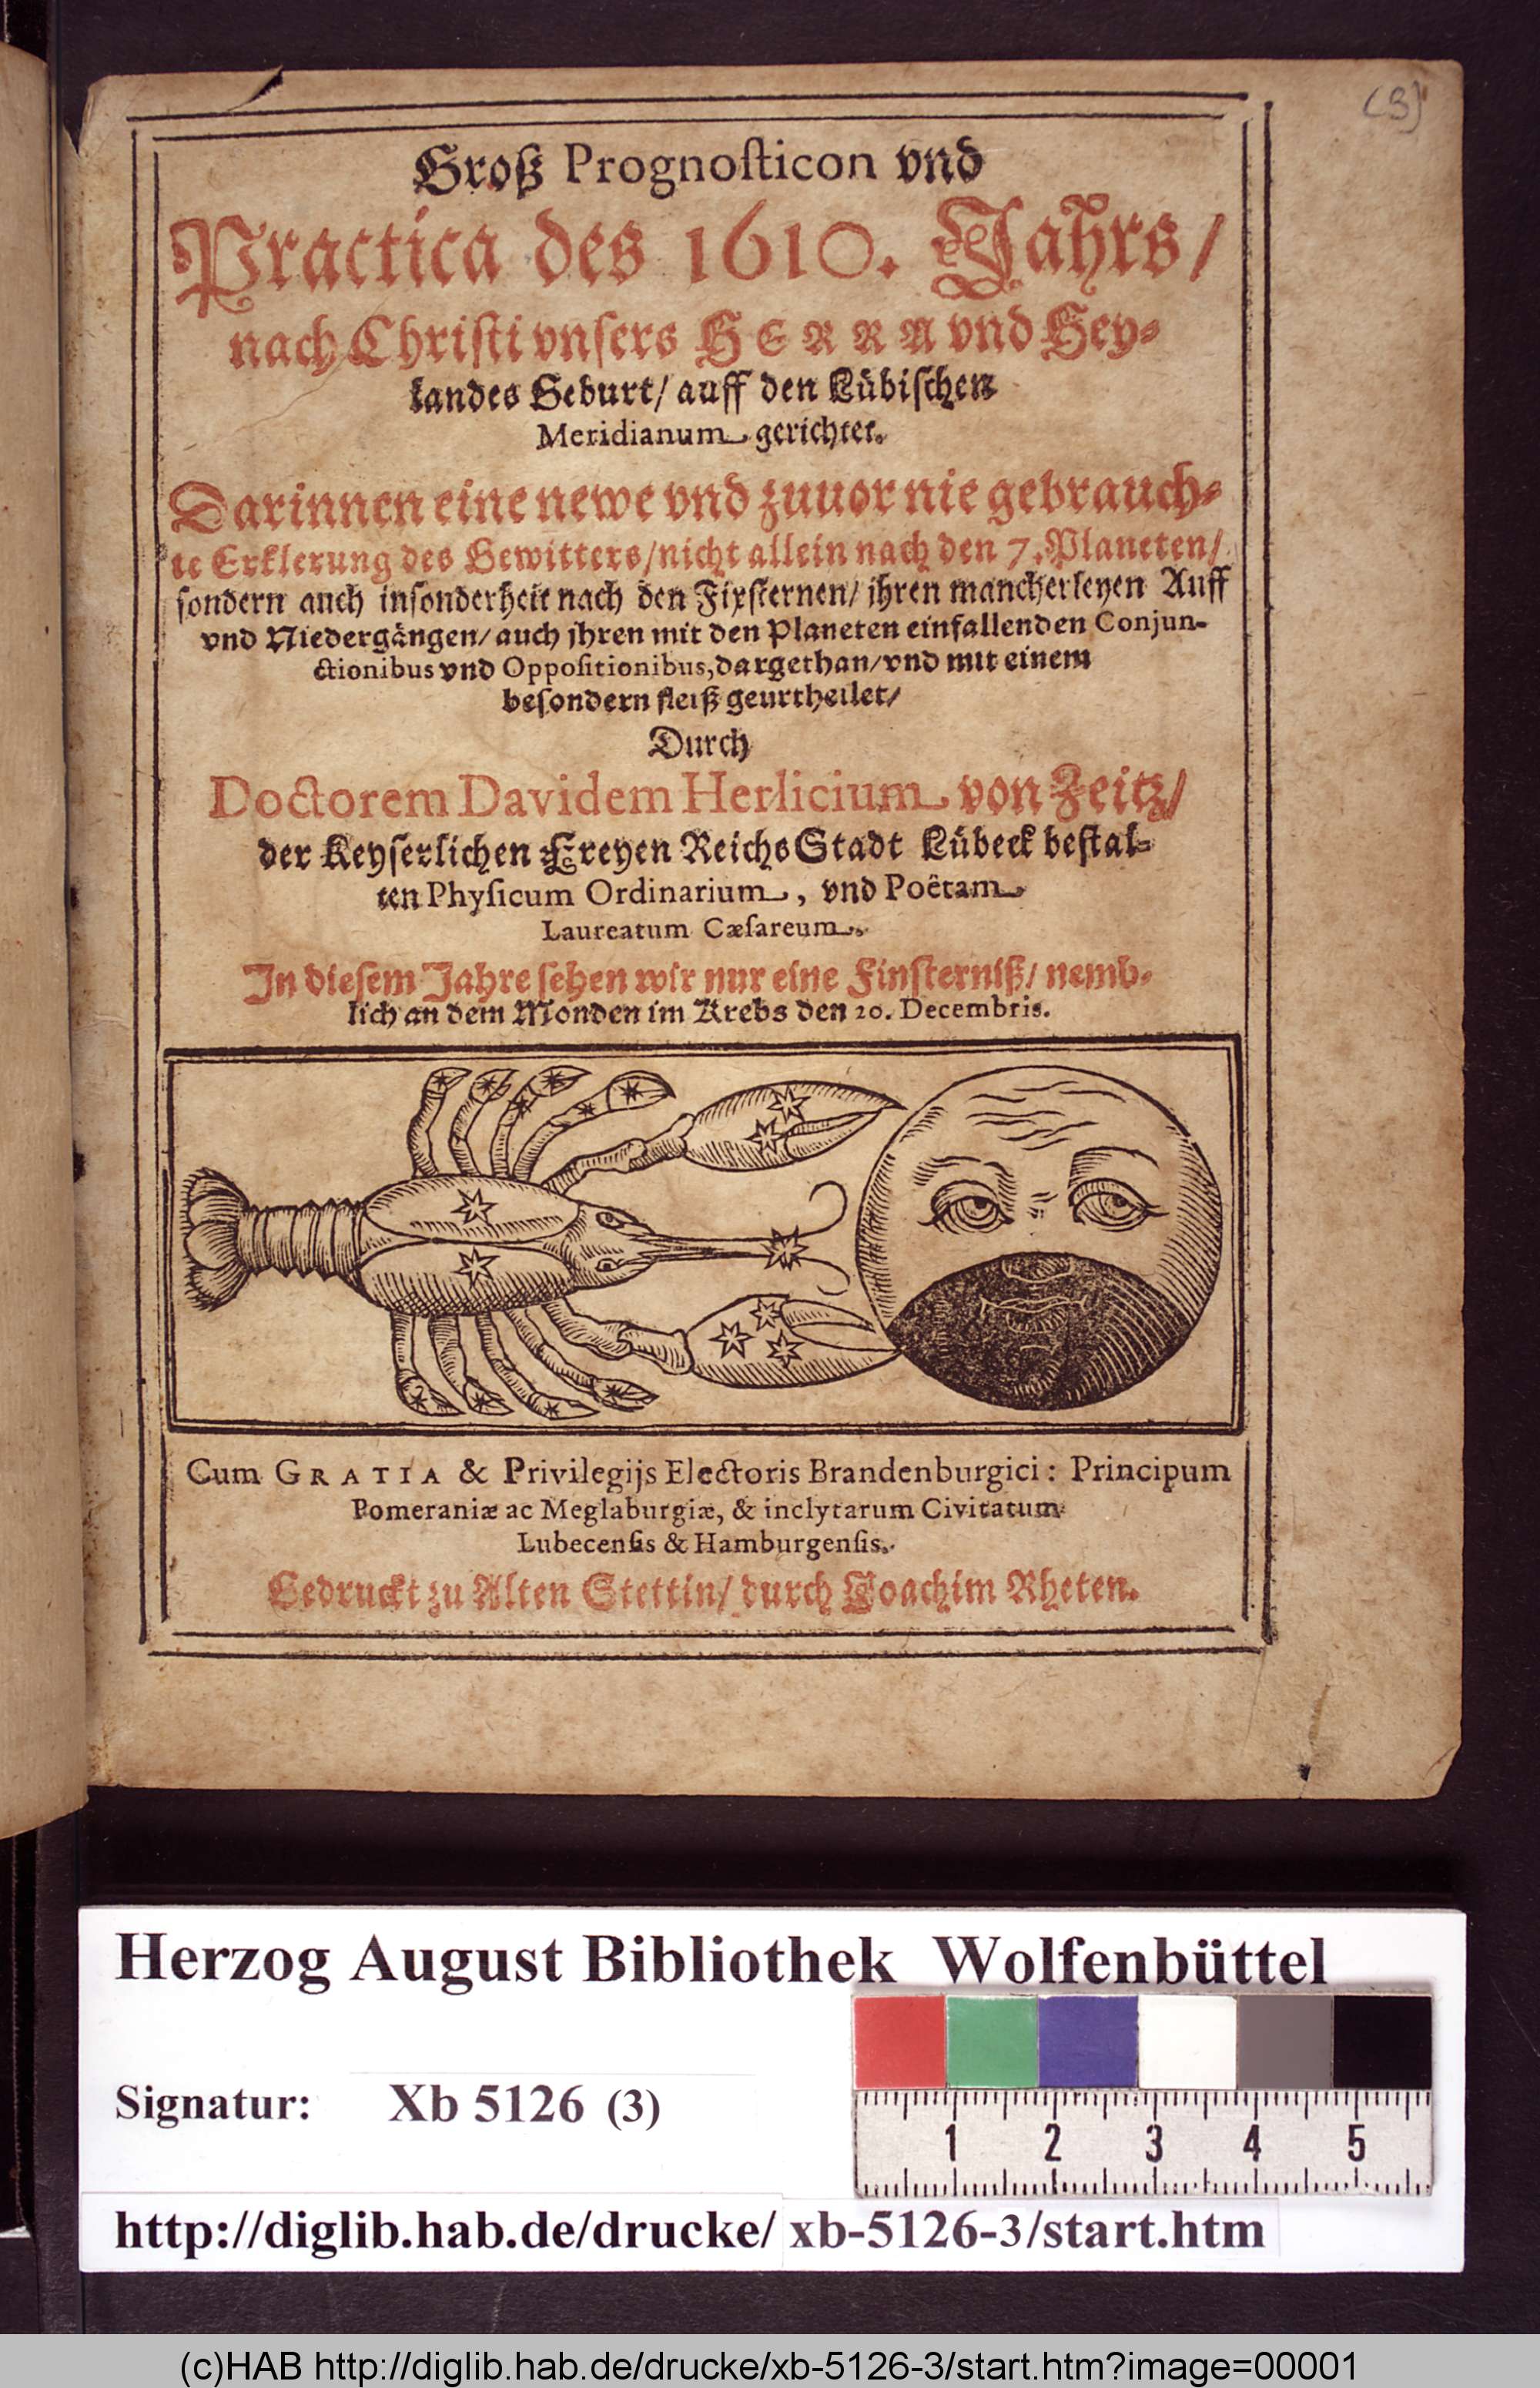 (3)
Groß Prognosticon vnd
Practica des 1610. Jahrs/
nach Christi vnsers HERRN vnd Hey-
landes Geburt/ auff den Lübischen
Meridianum gerichtet.
Darinnen eine newe vnd zuuor nie gebrauch-
te Erklerung des Gewitters/nicht allein nach den 7. Planeten/
sondern auch insonderheit nach den Fixsternen/ jhren mancherleyen Auff
vnd Niedergängen/ auch jhren mit den Planeten einfallenden Conjun-
ctionibus vnd Oppositionibus, dargethan/ vnd mit einem
besondern fleiß geurtheilet/
Durch
Doctorem Davidem Herlicium von Zeitz/
der Keyserlichen Freyen Reichs Stadt Lübeck bestal-
ten Physicum Ordinarium, vnd Poëtam
Laureatum Cæsareum.
In diesem Jahre sehen wir nur eine Finsterniß/ nemb-
lich an dem Monden im Krebs den 20. Decembris.
Cum GRATIA & Privilegijs Electoris Brandenburgici: Principum
Pomeraniæ ac Meglaburgiæ, & inclytarum Civitatum
Lubecensis & Hamburgensis.
Gedruckt zu Alten Stettin/ durch Joachim Rheten.
Herzog August Bibliothek Wolfenbüttel
Signatur: Xb 5126 (3)
1 2 3 4 5
http://diglib.hab.de/drucke/ xb-5126-3/start.htm
(c)HAB http://diglib.hab.de/drucke/xb-5126-3/start.htm?image=00001